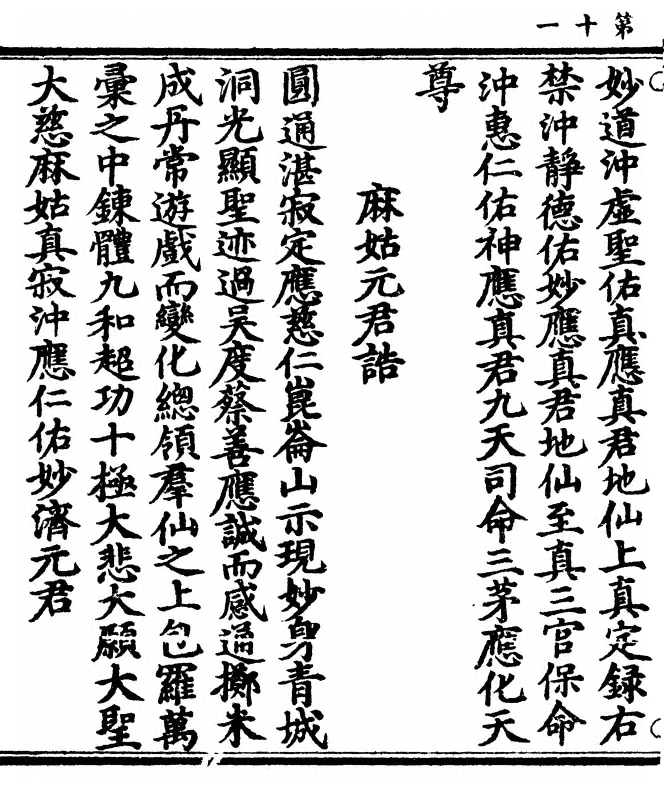 第十一
妙道沖虛聖佑真應真君地仙上真定録右
禁沖靜德佑妙應真君地仙至真三官保命
沖惠仁佑神應真君九天司命三茅應化天
尊
麻姑元君誥
圓通湛寂定應慈仁崑崙山示現妙身青城
洞光顯聖迹過吳度蔡善應誠而感通擲米
成丹常遊戲而變化總領羣仙之上包羅萬
彙之中鍊體九和超功十極大悲大願大聖
大慈麻姑真寂沖應仁佑妙濟元君